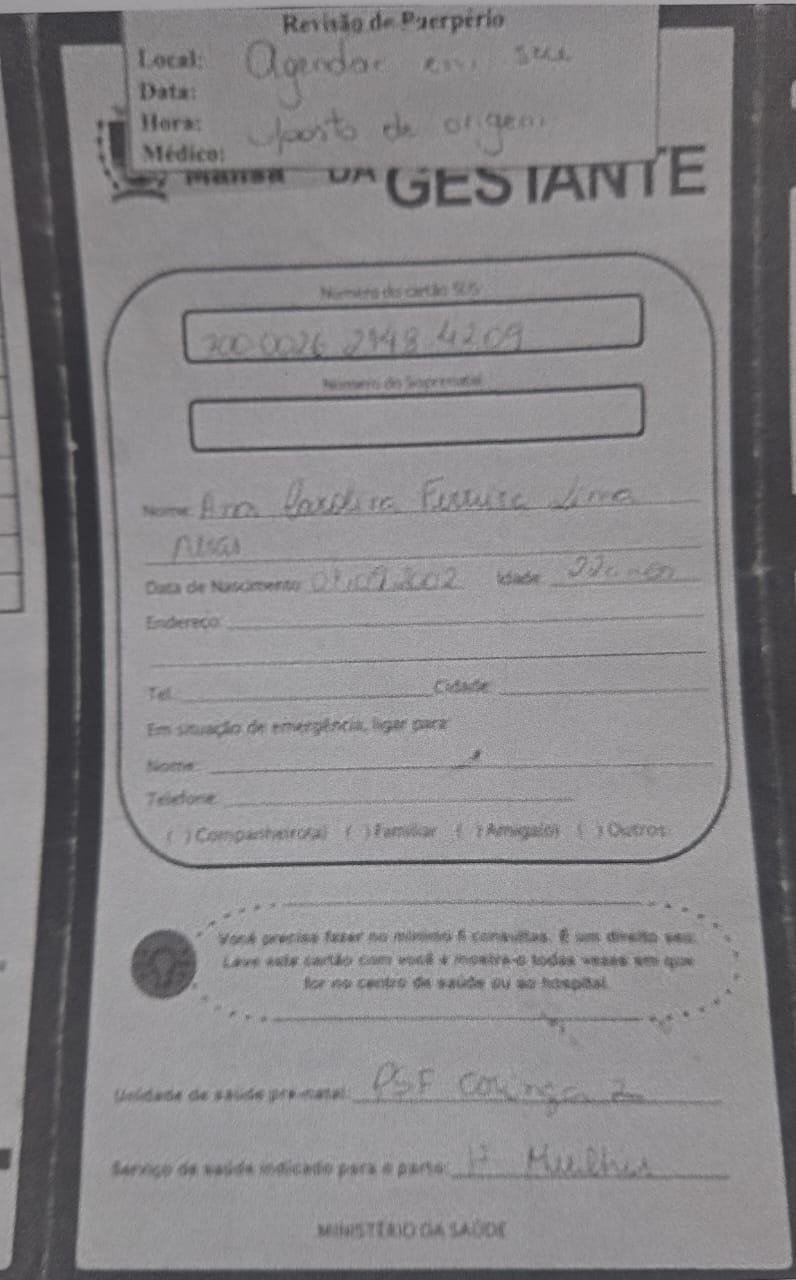 Revisão de Puerpério
Local: Agendar em seu
Data:
Hora: posto de origem
Médico:
DA GESTANTE
Número do cartão SUS
700 0026 2948 4209
Número do Sisprenatal
Nome: Ana Carolina Ferreira Lima
Data de Nascimento 2002 Idade: 22 anos
Endereço:
Tel. Cidade:
Em situação de emergência, ligar para:
Nome:
Telefone:
( ) Companheiro(a) ( ) Familiar ( ) Amiga(o) ( ) Outros
Você precisa fazer no mínimo 6 consultas. É um direito seu.
Leve este cartão com você e mostre-o todas vezes em que
for no centro de saúde ou ao hospital.
Unidade de saúde pré-natal: PSF 2
Serviço de saúde indicado para o parto: H Mulher
MINISTÉRIO DA SAÚDE